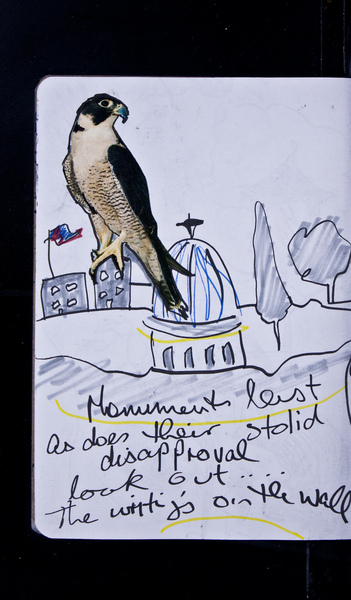 Monuments
as does their stolid
disapproval
look out.....
The writing's on the wall